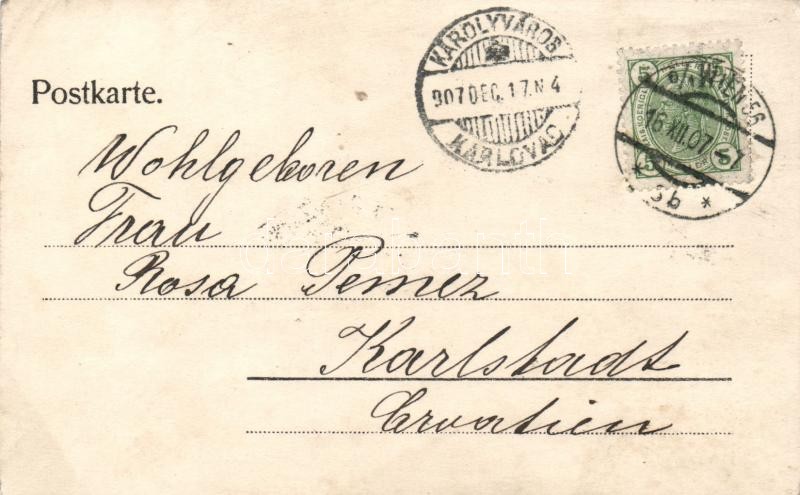 Postkarte.
KÁROLYVÁROS
907 DEC. 17. N 4
KARLOVAC
WIEN 56
16. XII. 07
5
5
5
Wohlgeboren
Frau
Rosa Pemez
Karlstadt
Croatien